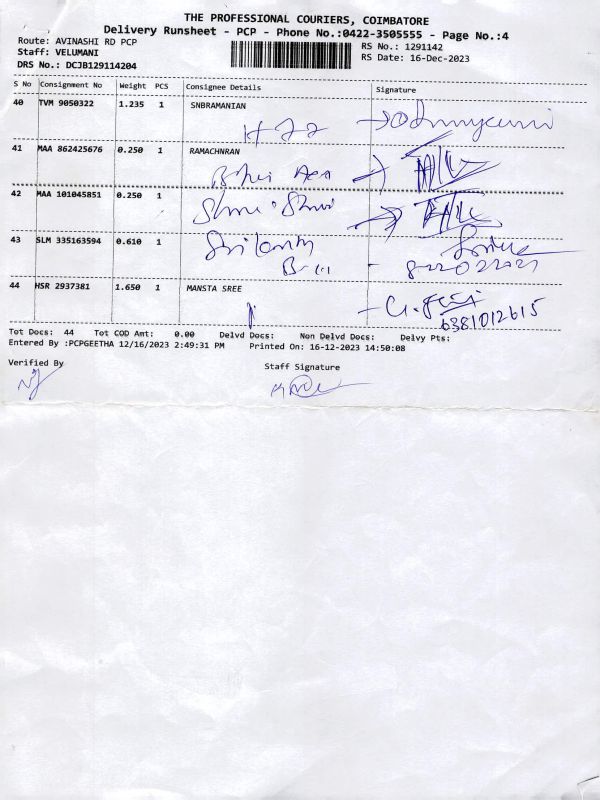 THE PROFESSIONAL COURIERS, COIMBATORE
Delivery Runsheet - PCP - Phone No.:0422-3505555 - Page No.:4
Route: AVINASHI RD PCP
RS No.: 1291142
Staff: VELUMANI
RS Date: 16-Dec-2023
DRS No.: DCJB129114204
S No Consignment No Weight PCS Consignee Details Signature
40 TVM 9050322 1.235 1 SNBRAMANIAN
41 MAA 862425676 0.250 1 RAMACHNRAN
42 MAA 101045851 0.250 1
43 SLM 335163594 0.610 1
44 HSR 2937381 1.650 1 MANSTA SREE
6381012615
Tot Docs: 44 Tot COD Amt: 0.00 Delvd Docs: Non Delvd Docs: Delvy Pts:
Entered By :PCPGEETHA 12/16/2023 2:49:31 PM Printed On: 16-12-2023 14:50:08
Verified By
Staff Signature